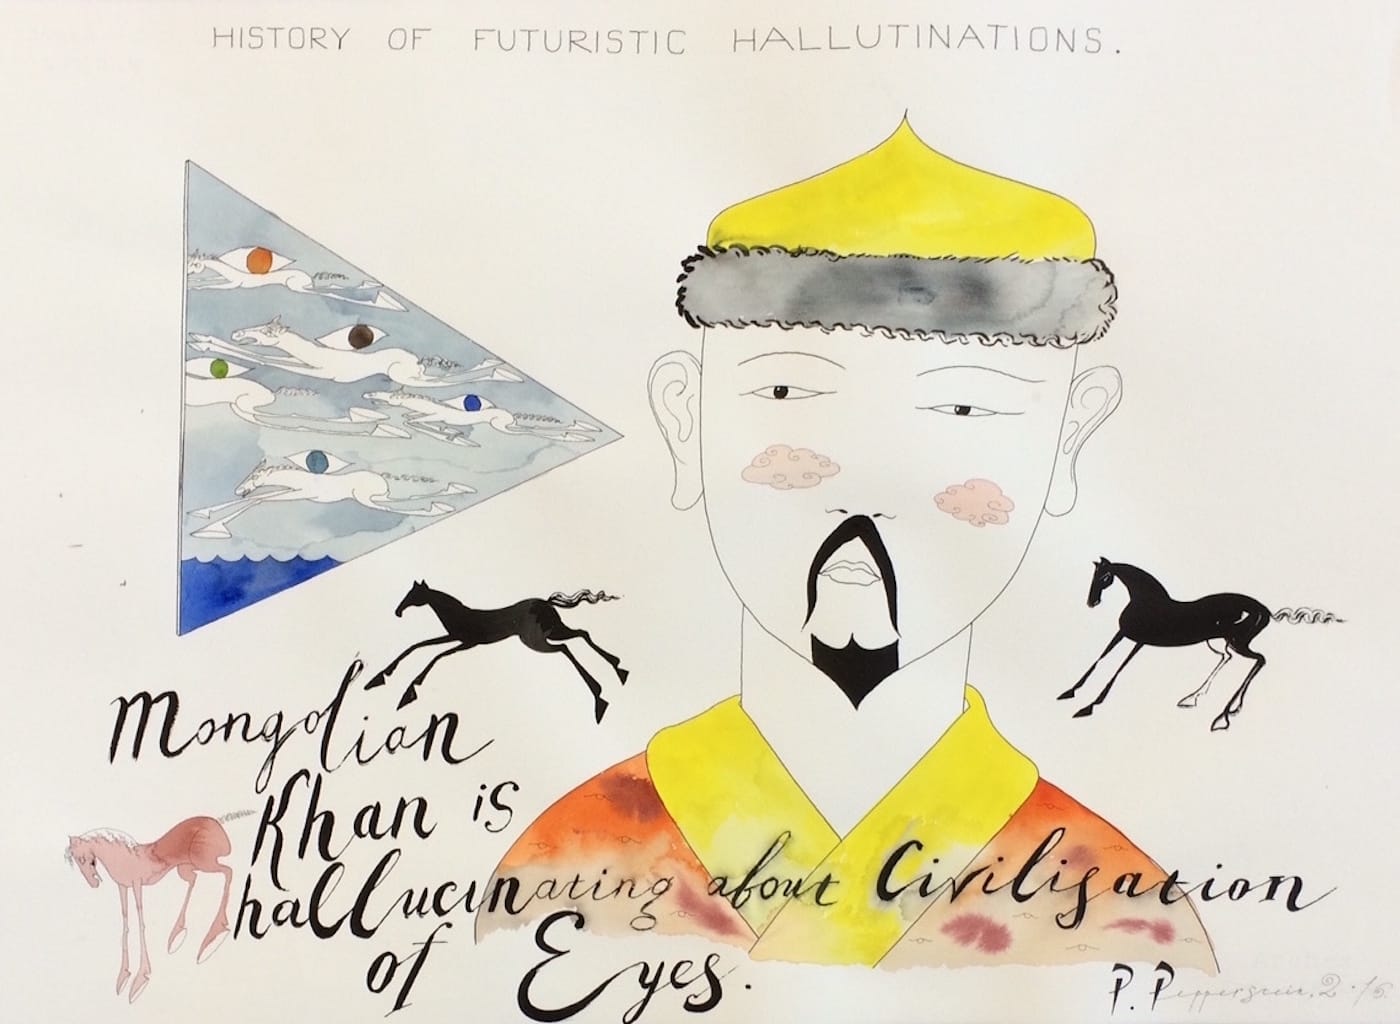 HISTORY OF FUTURISTIC HALLUTINATIONS.
Mongolian
Khan is
hallucinating about Civilisation
of Eyes.
P. Peppersrein, 2·16.